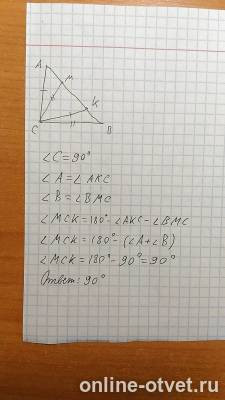 A
M
K
C
B
∠C = 90°
∠A = ∠AKC
∠B = ∠BMC
∠MCK = 180° - ∠AKC - ∠BMC
∠MCK = 180° - (∠A + ∠B)
∠MCK = 180° - 90° = 90°
Ответ: 90°
online-otvet.ru